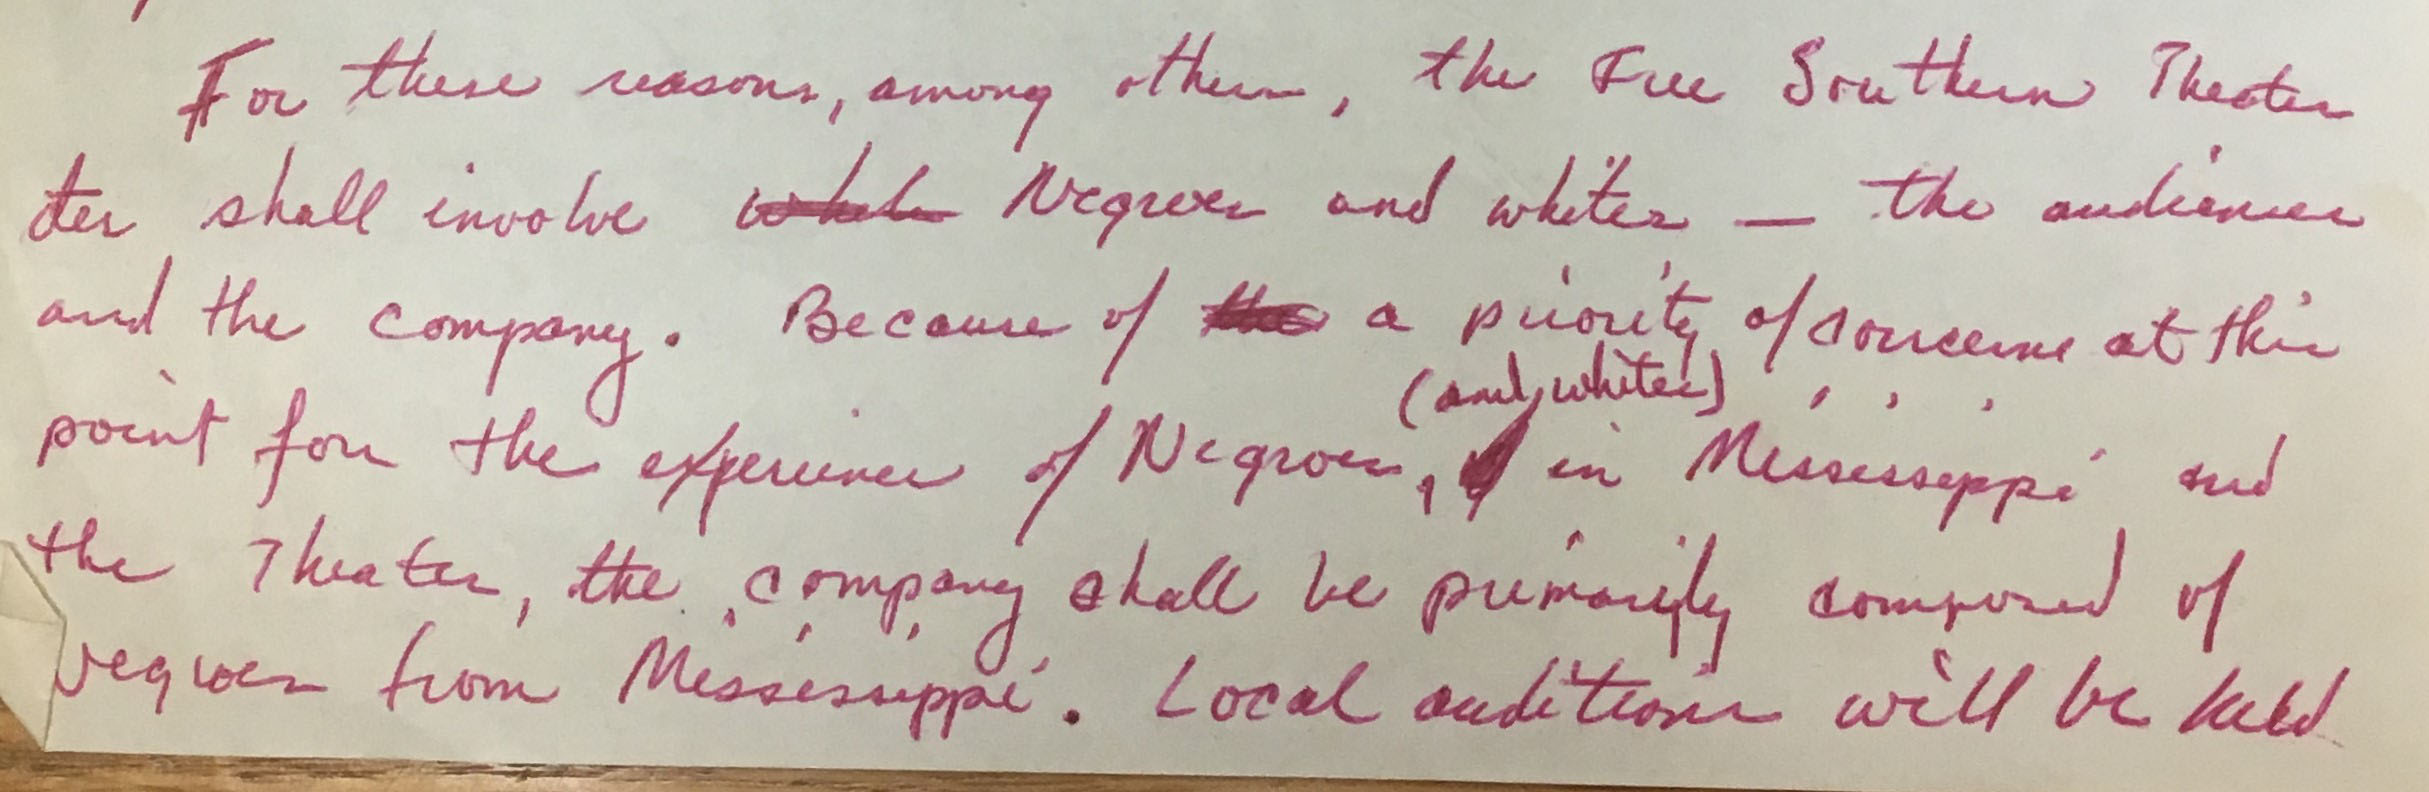 For these reasons, among others, the Free Southern Theater
ter shall involve Negroes and whites — the audiences
and the company. Because of a priority of concerns at this
(and whites)
point for the experience of Negroes, in Mississippi and
the Theater, the company shall be primarily composed of
Negroes from Mississippi. Local auditions will be held